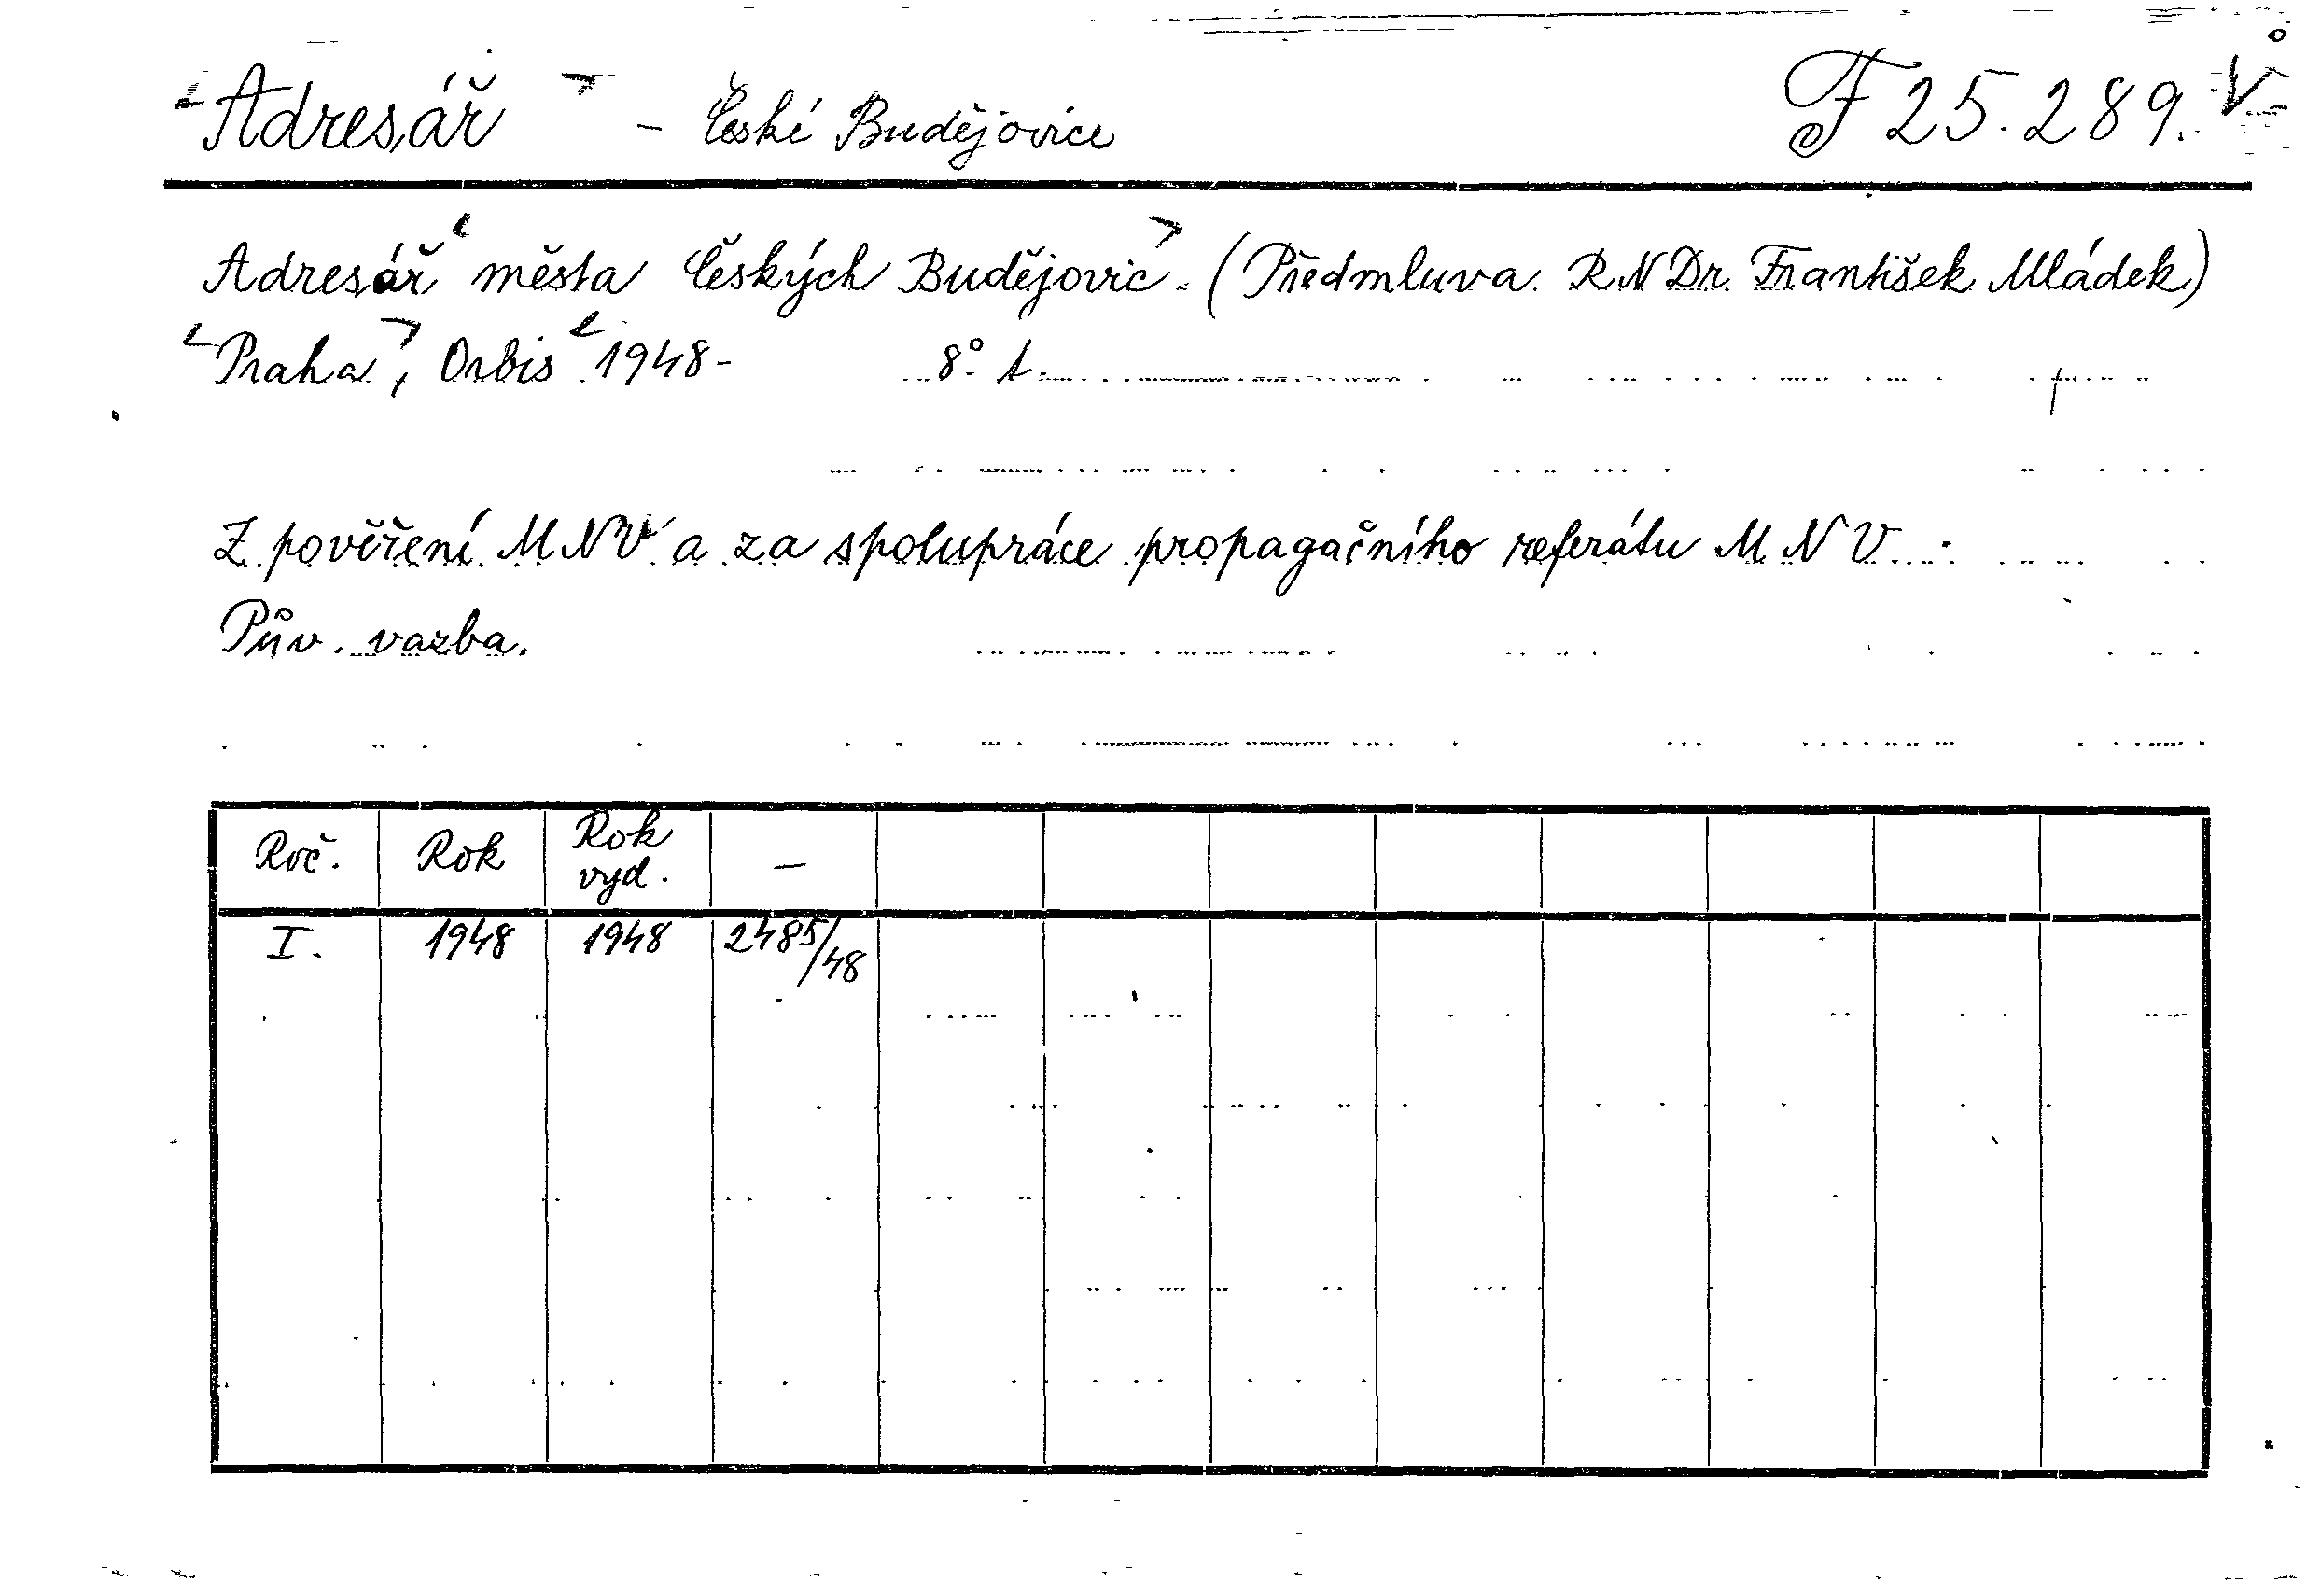 Adresář - České Budějovice F 25.289. V
Adresář města Českých Budějovic. (Předmluva RNDr. František Mládek)
Praha, Orbis 1948- 8° t.
Z pověření MNV a za spolupráce propagačního referátu MNV.
Pův. vazba.
Roč. Rok Rok vyd. -
I. 1948 1948 2485/48